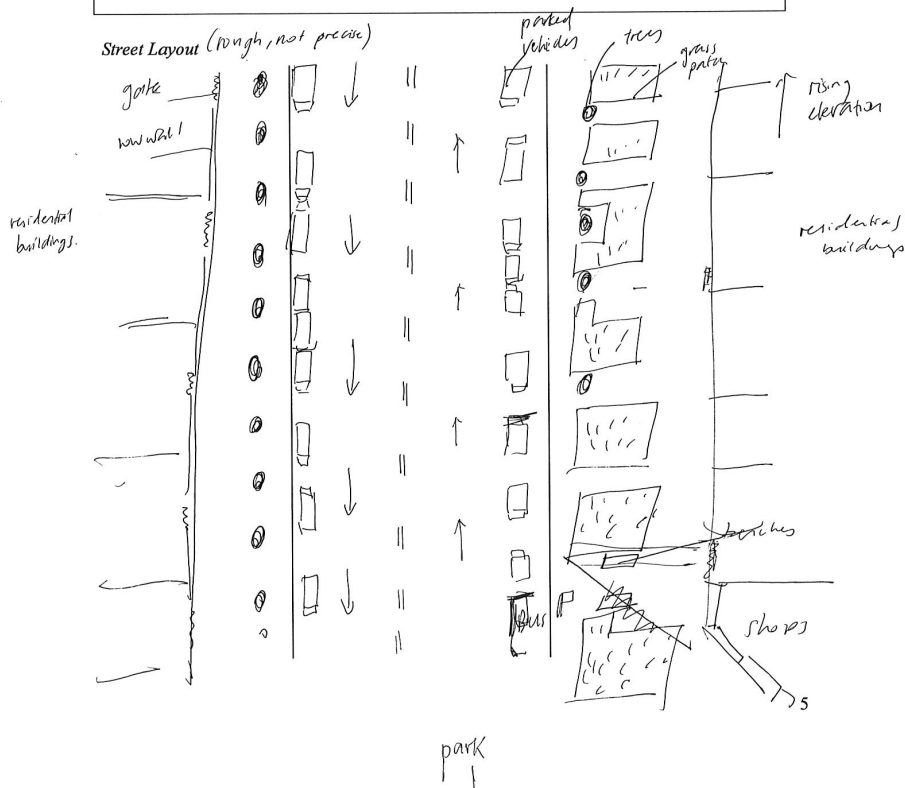 Street Layout (rough, not precise)
parked
vehicles
trees
grass
patch
gate
low wall
rising
elevation
residential
buildings.
residential
buildings
benches
Bus
shops
5
park